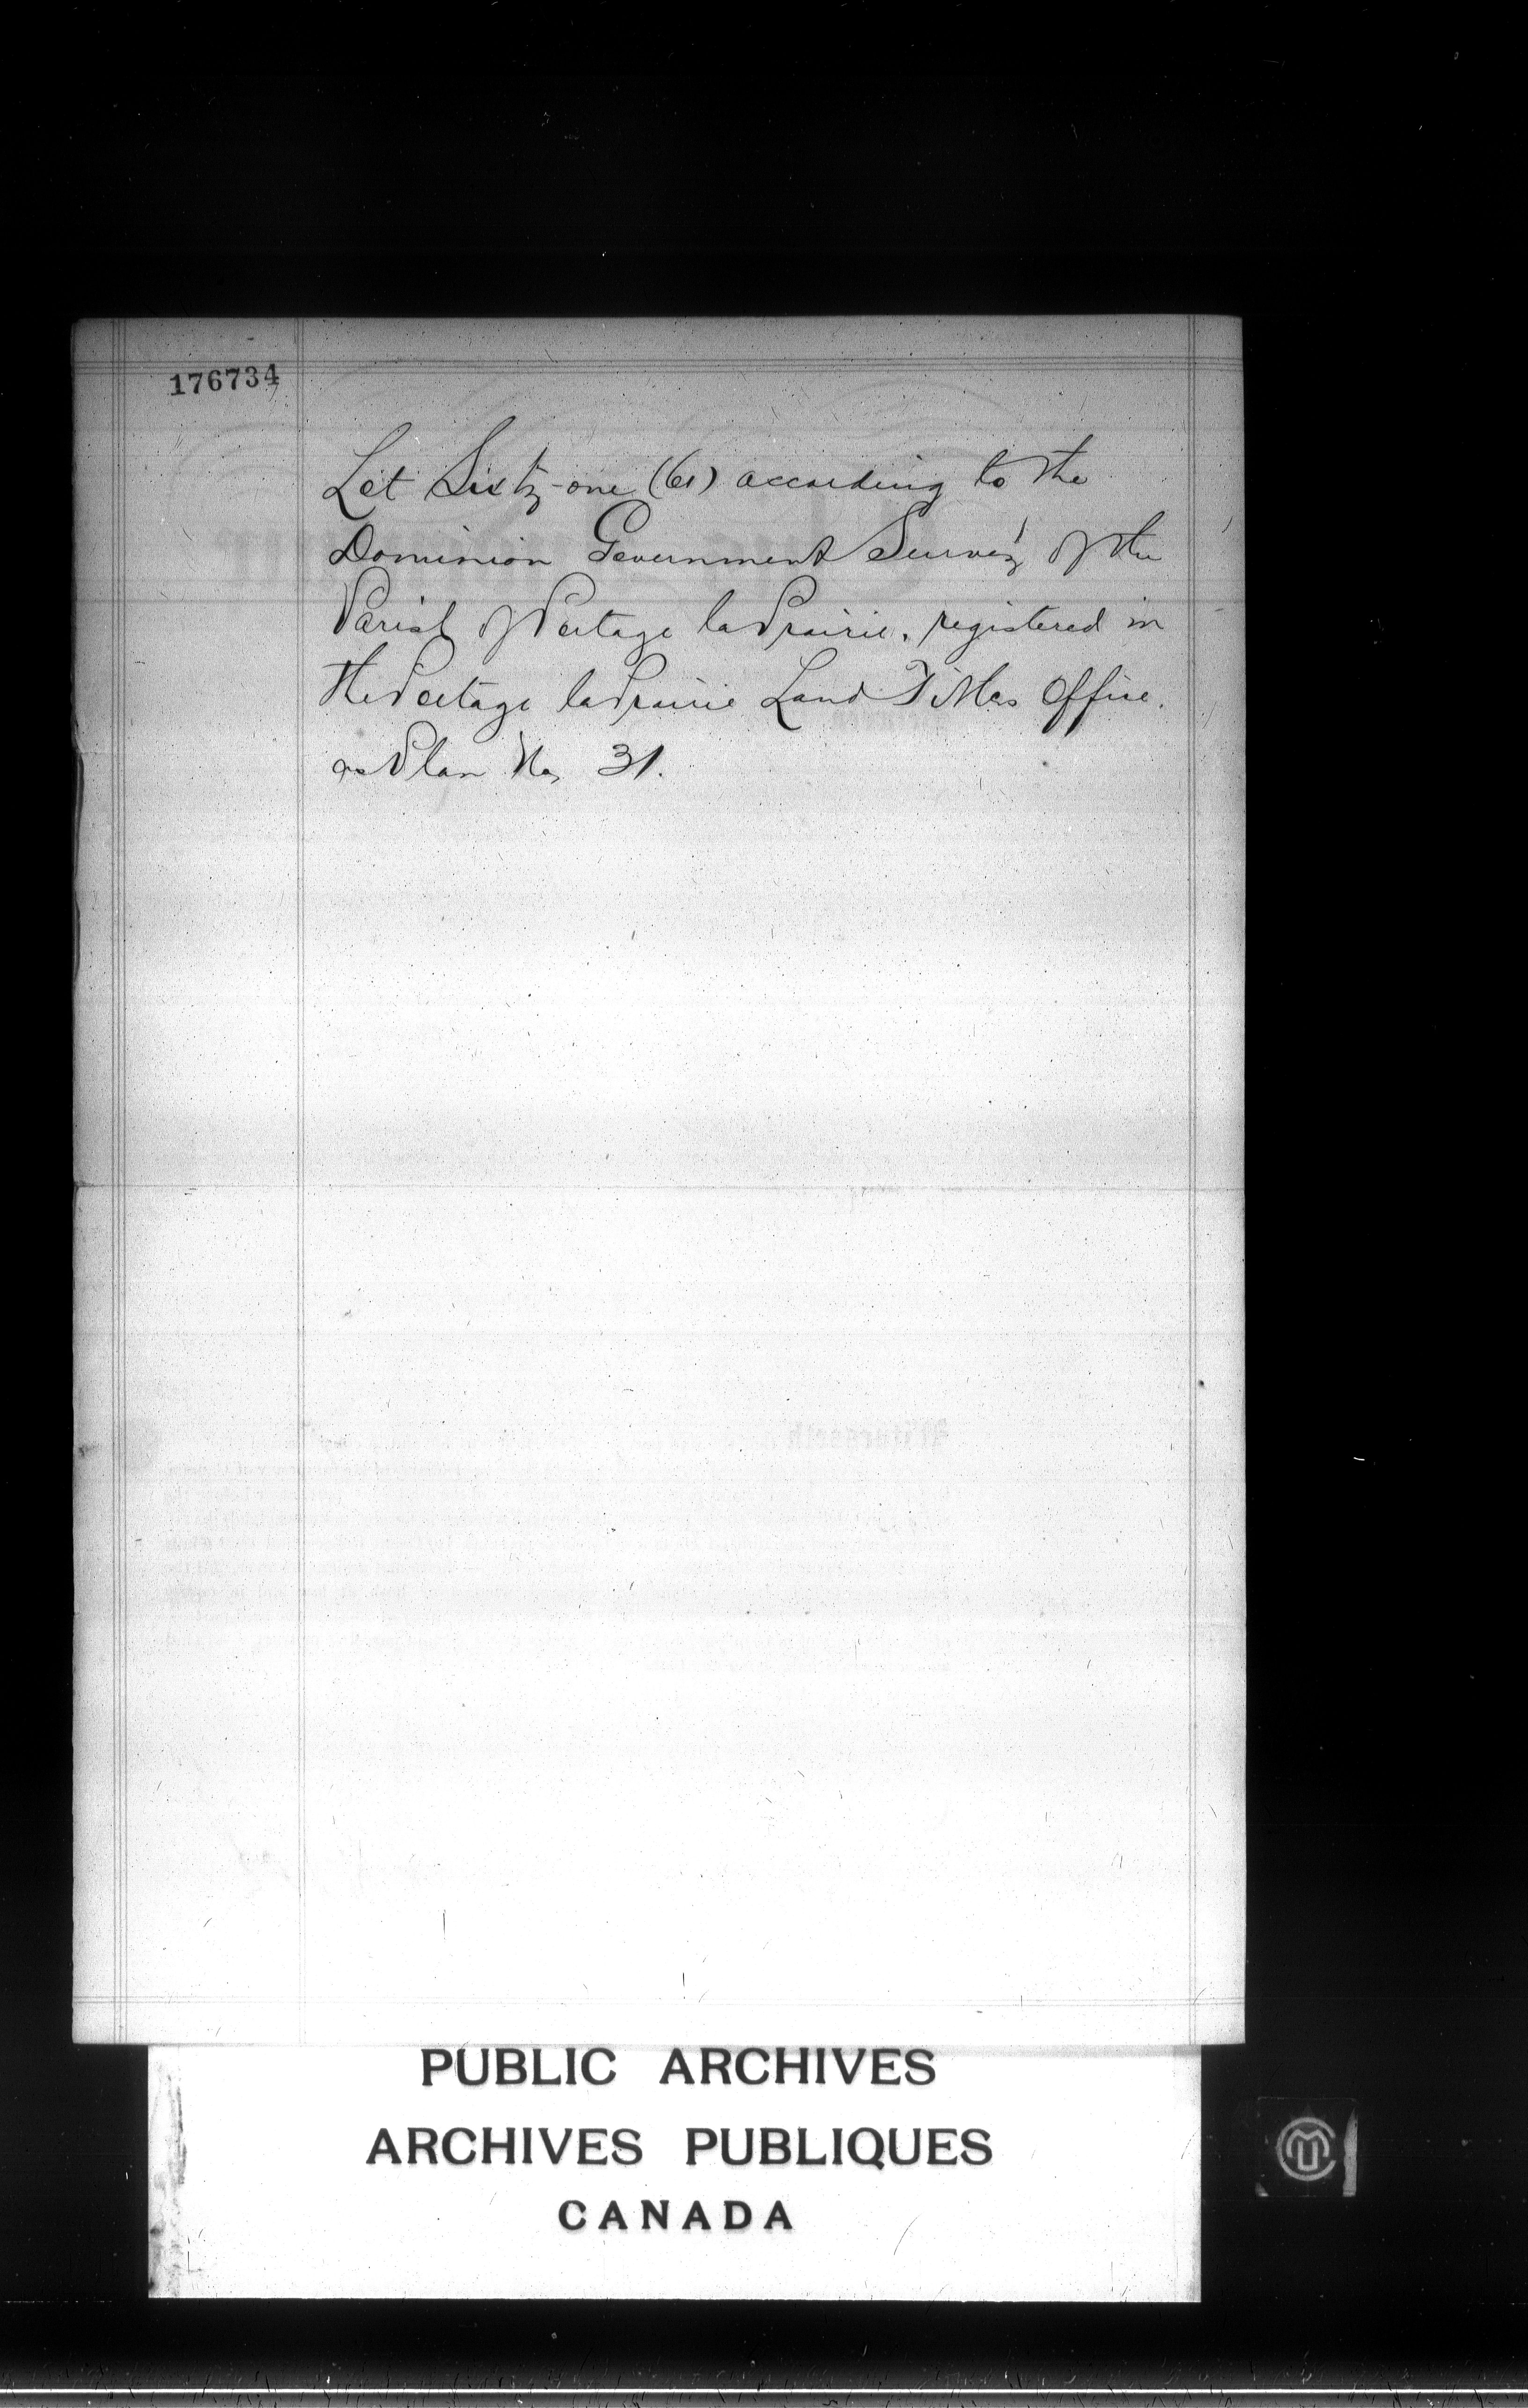 176734
Lot Sixty-one (61) according to the
Dominion Government Survey of the
Parish of Portage la Prairie, registered in
the Portage la Prairie Land Titles Office.
as Plan No, 31.
PUBLIC ARCHIVES
ARCHIVES PUBLIQUES
CANADA